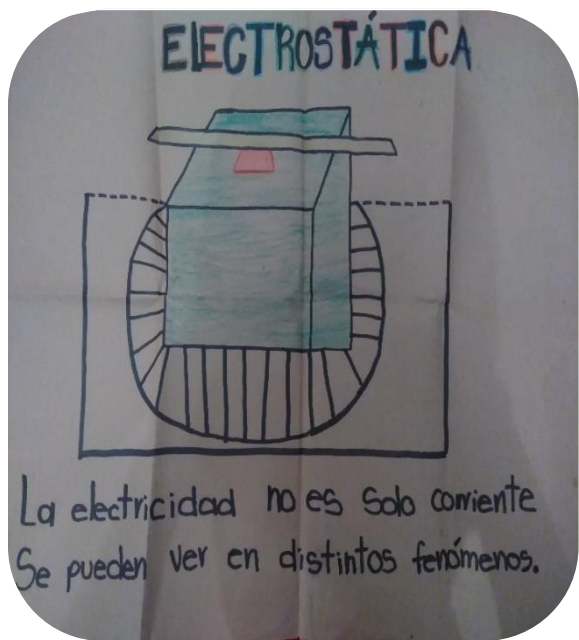 ELECTROSTÁTICA
La electricidad no es solo corriente
Se pueden ver en distintos fenómenos.